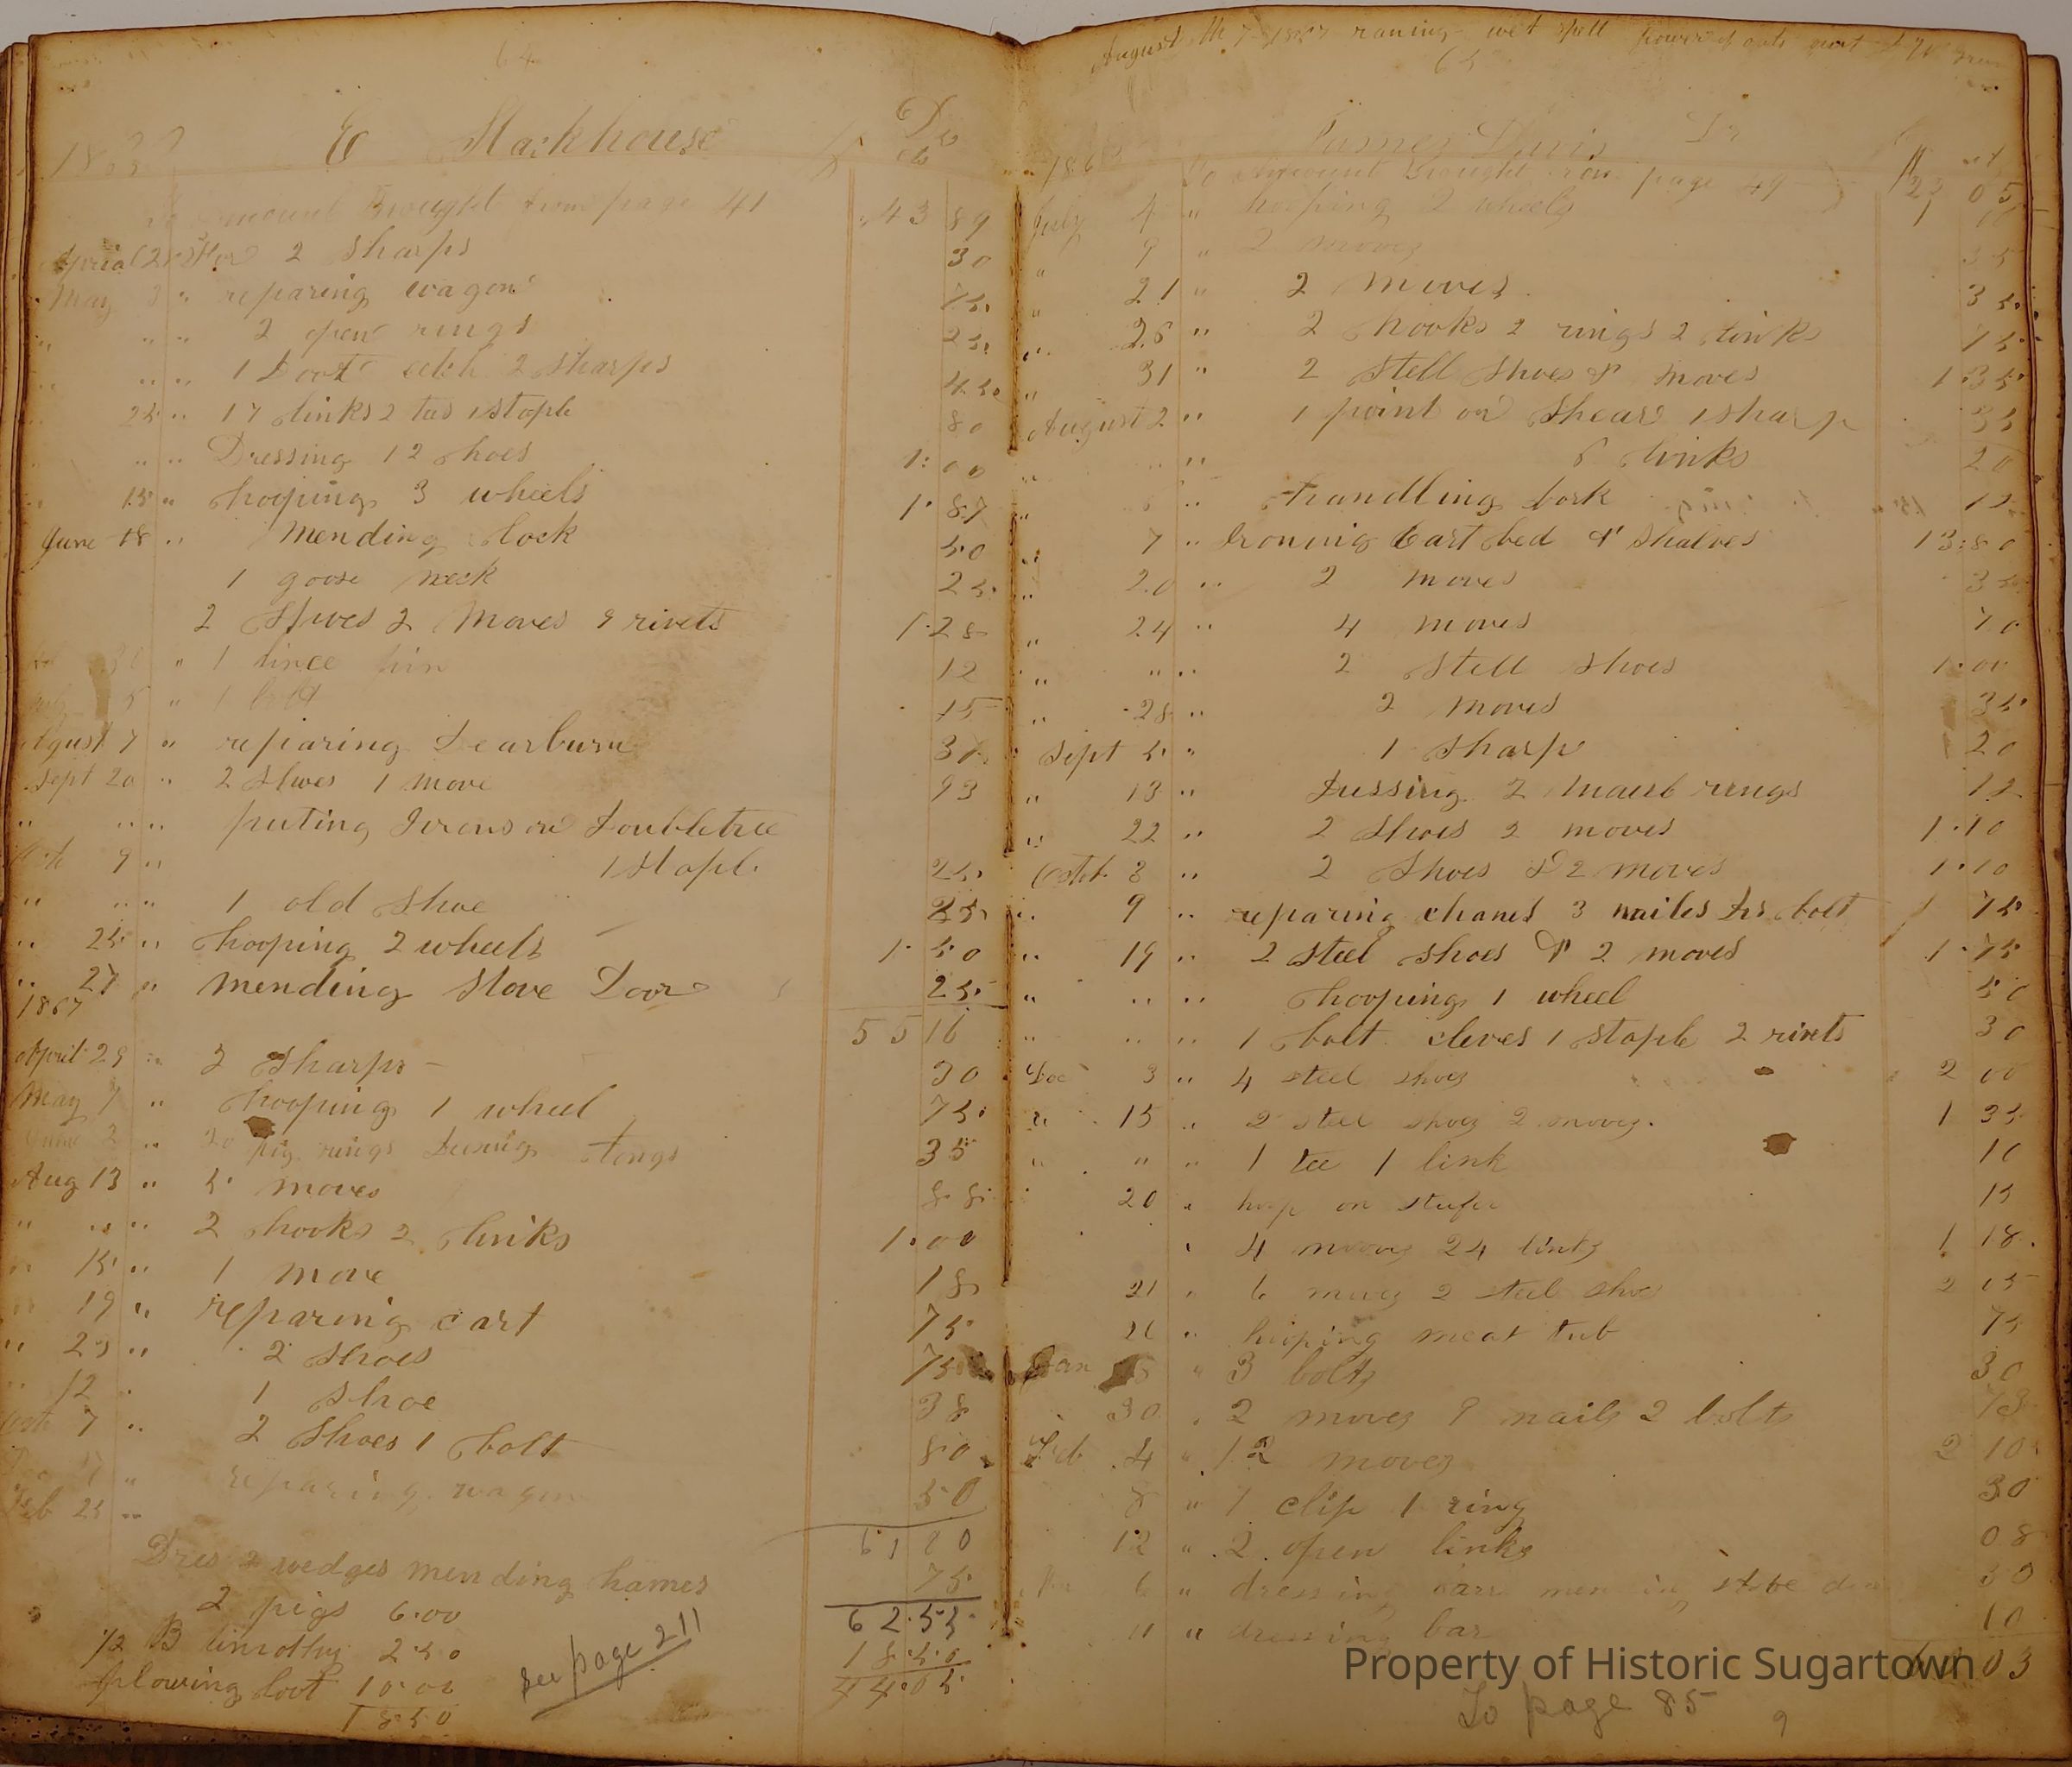 64
E Stackhouse Dr
amount Brought from page 41 43 89
April 25 For 2 sharps 30
May 3 " reparing wagon 75
" " " 2 open rings 25
" " " 1 2 sharps 45
" 25 " 17 links 2 tes 1 staple 80
" " " Dressing 12 shoes 1.00
" 15 " hooping 3 wheels 1.87
June 18 " Mending lock 50
1 goose neck 25
2 Shoes 2 Moves 9 rivets 1.28
30 " 1 lince pin 12
5 " 1 bolt 15
August 7 " reparing Dearburn
Sept 20 " 2 Shoes 1 move 93
" " " puting Irons on Doubletree
9 " 1 Staple 25
" " " 1 old shoe 25
" 25 " hooping 2 wheels 1.50
" 27 " mending Stove Door 25
1867
55 16
April 29 " 2 sharps 30
May 7 " hooping 1 wheel 75
2 " 20 pig rings tongs 35
Aug 13 " 5 moves 88
" " " 2 hooks 2 links 1.00
" 15 " 1 move 18
" 19 " reparing cart 75
" 23 " 2 shoes 75
" 12 " 1 shoe 38
7 " 2 Shoes 1 bolt 80
" reparing wagon 50
Feb 25 "
61 80
Dres 2 wedges mending hames 75
2 pigs 6.00 62.55
1/2 B timothy 2 50 18.50
plowing loot 10.00 44.05
18 50
see page 211
August the 7 1867 raning wet spell
65
James Davis Dr
To Amount Brought from page 49 23 05
July 4 " hooping 2 wheels 1
" 9 " 2 moves 35
" 21 " 2 moves 35
" 26 " 2 hooks 2 rings 2 links 75
" 31 " 2 stell shoes & moves 1.35
August 2 " 1 point on Shear 1 sharp 35
" " " links 20
" " handling fork 12
" 7 " Ironing Cart bed & Shalves 13.80
" 20 " 2 moves 35
" 24 " 4 moves 70
" " " 2 stell shoes 1.00
" 28 " 2 moves 35
Sept 5 " 1 Sharp 20
" 13 " 2 rings 12
" 22 " 2 Shoes 2 moves 1.10
Octb 3 " 2 Shoes & 2 moves 1.10
" 9 " reparing chanes 3 nailes bolt 75
" 19 " 2 steel shoes & 2 moves 1.75
" " " hooping 1 wheel 50
" " " 1 bolt cleves 1 staple 2 rivets 30
Dec 3 " 4 steel shoes 2 00
" 15 " 2 steel shoes 2 moves 1 35
" " " 1 tee 1 link 10
20 " hoop on 15
" 4 moves 24 links 1 18
21 " 6 moves 2 steel shoes 2 05
26 " hooping meat tub 75
Jan " 3 bolts 30
30 " 2 moves 9 nails 2 bolts 73
Feb 4 " 12 moves 2 10
8 " 1 clip 1 ring 30
12 " 2 open links 08
6 " dressing 30
11 " dressing bar 10
03
To page 85
9
Property of Historic Sugartown